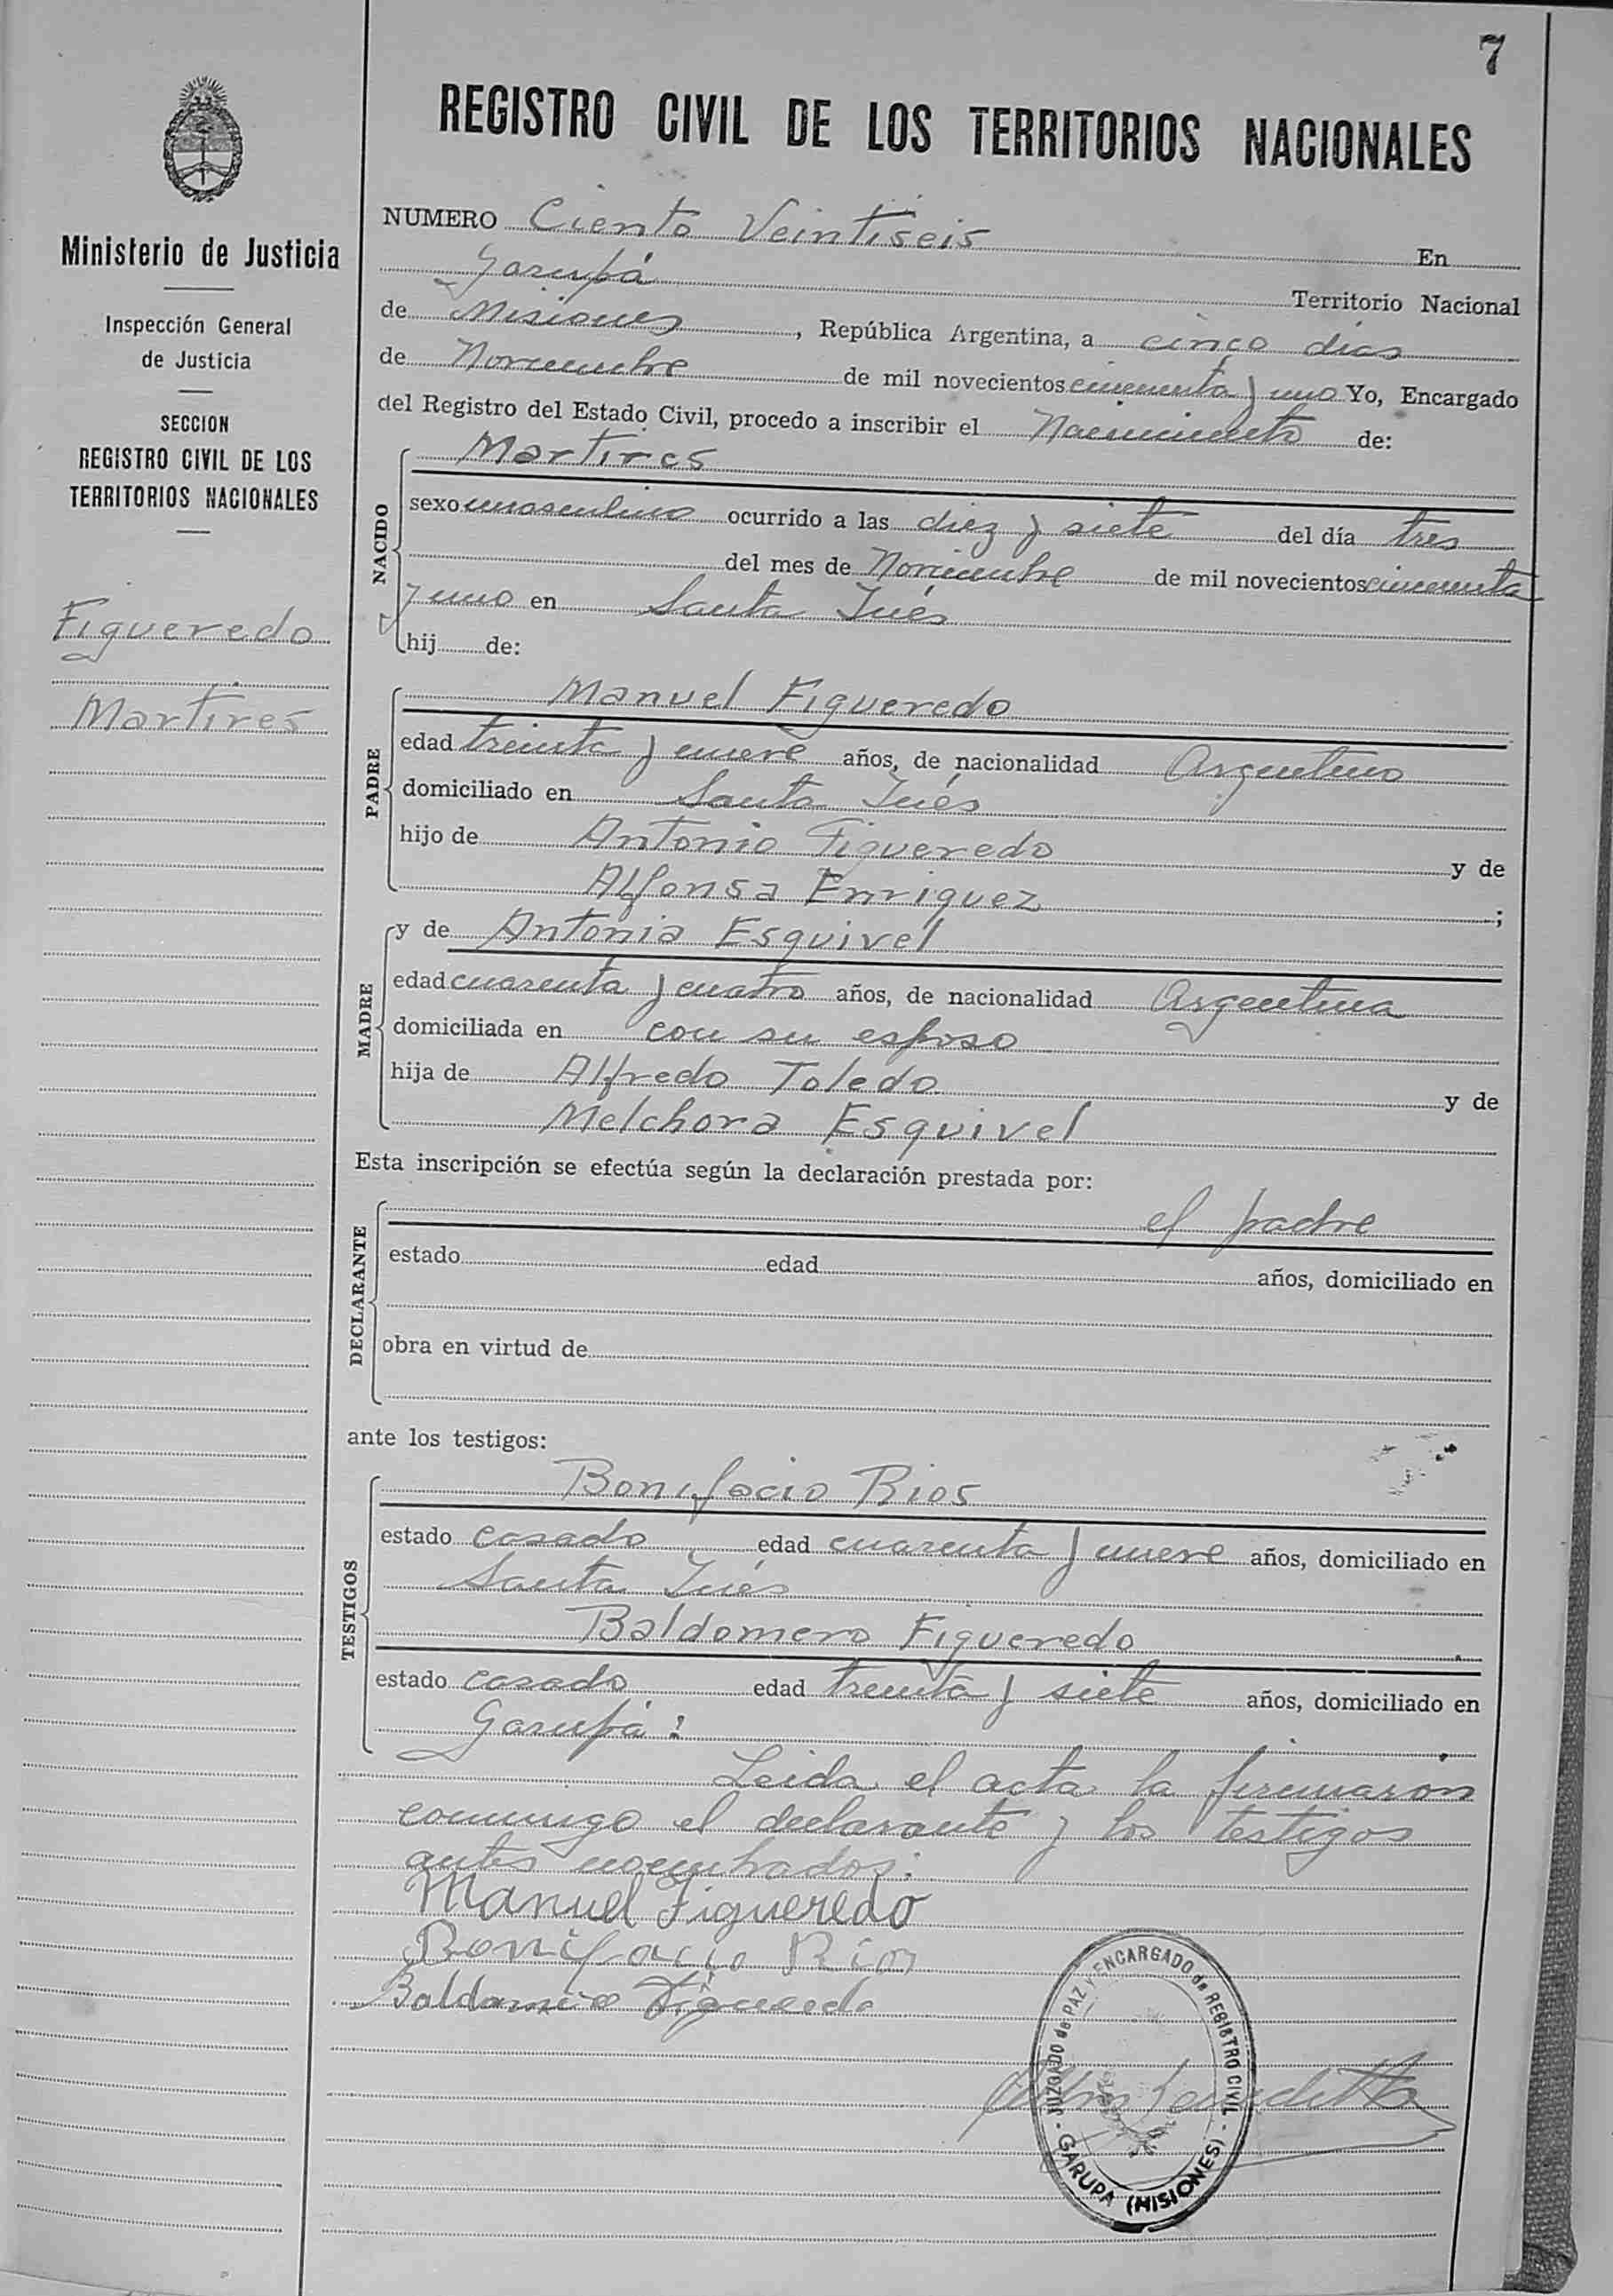 7
REGISTRO CIVIL DE LOS TERRITORIOS NACIONALES
Ministerio de Justicia
Inspección General
de Justicia
SECCION
REGISTRO CIVIL DE LOS
TERRITORIOS NACIONALES
Figueredo
Martires
NUMERO Ciento Veintiseis En
Garupá Territorio Nacional
de Misiones, República Argentina, a cinco dias
de Noviembre de mil novecientos cincuenta y uno Yo, Encargado
del Registro del Estado Civil, procedo a inscribir el Nacimiento de:
NACIDO
Martires
sexo masculino ocurrido a las diez y siete del día tres
del mes de Noviembre de mil novecientos cincuenta
y uno en Santa Inés
hij de:
PADRE
Manuel Figueredo
edad treinta y nueve años, de nacionalidad Argentino
domiciliado en Santa Inés
hijo de Antonio Figueredo y de
Alfonsa Enriquez ;
MADRE
y de Antonia Esquivel
edad cuarenta y cuatro años, de nacionalidad Argentina
domiciliada en con su esposo
hija de Alfredo Toledo y de
Melchora Esquivel
Esta inscripción se efectúa según la declaración prestada por:
DECLARANTE
el padre
estado edad años, domiciliado en
obra en virtud de
ante los testigos:
TESTIGOS
Bonifacio Rios
estado casado edad cuarenta y nueve años, domiciliado en
Santa Inés
Baldomero Figueredo
estado casado edad treinta y siete años, domiciliado en
Garupá:
Leida el acta la firmaron
conmigo el declarante y los testigos
antes nombrados:
Manuel Figueredo
Bonifacio Rios
Baldomero Figueredo
JUZGADO de PAZ Y ENCARGADO de REGISTRO CIVIL - GARUPA (MISIONES) -